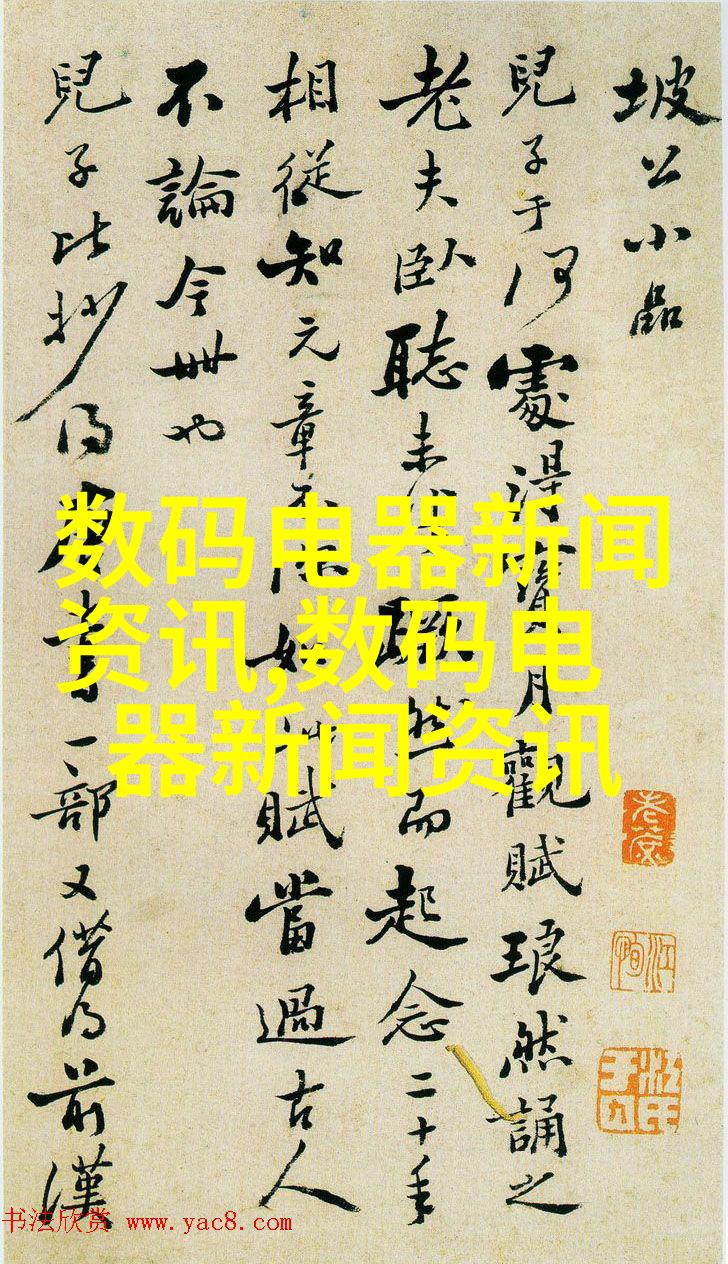 坡公小品
兒子于何處得寶月觀賦琅然誦之
老夫臥聽未然而起念二十年
相從知元章不賦當過古人
不論今世也
兒子比抄得唐書一部又借得前漢
数码电器新闻
资讯,数码电
器新闻资讯
书法欣赏 www.yac8.com